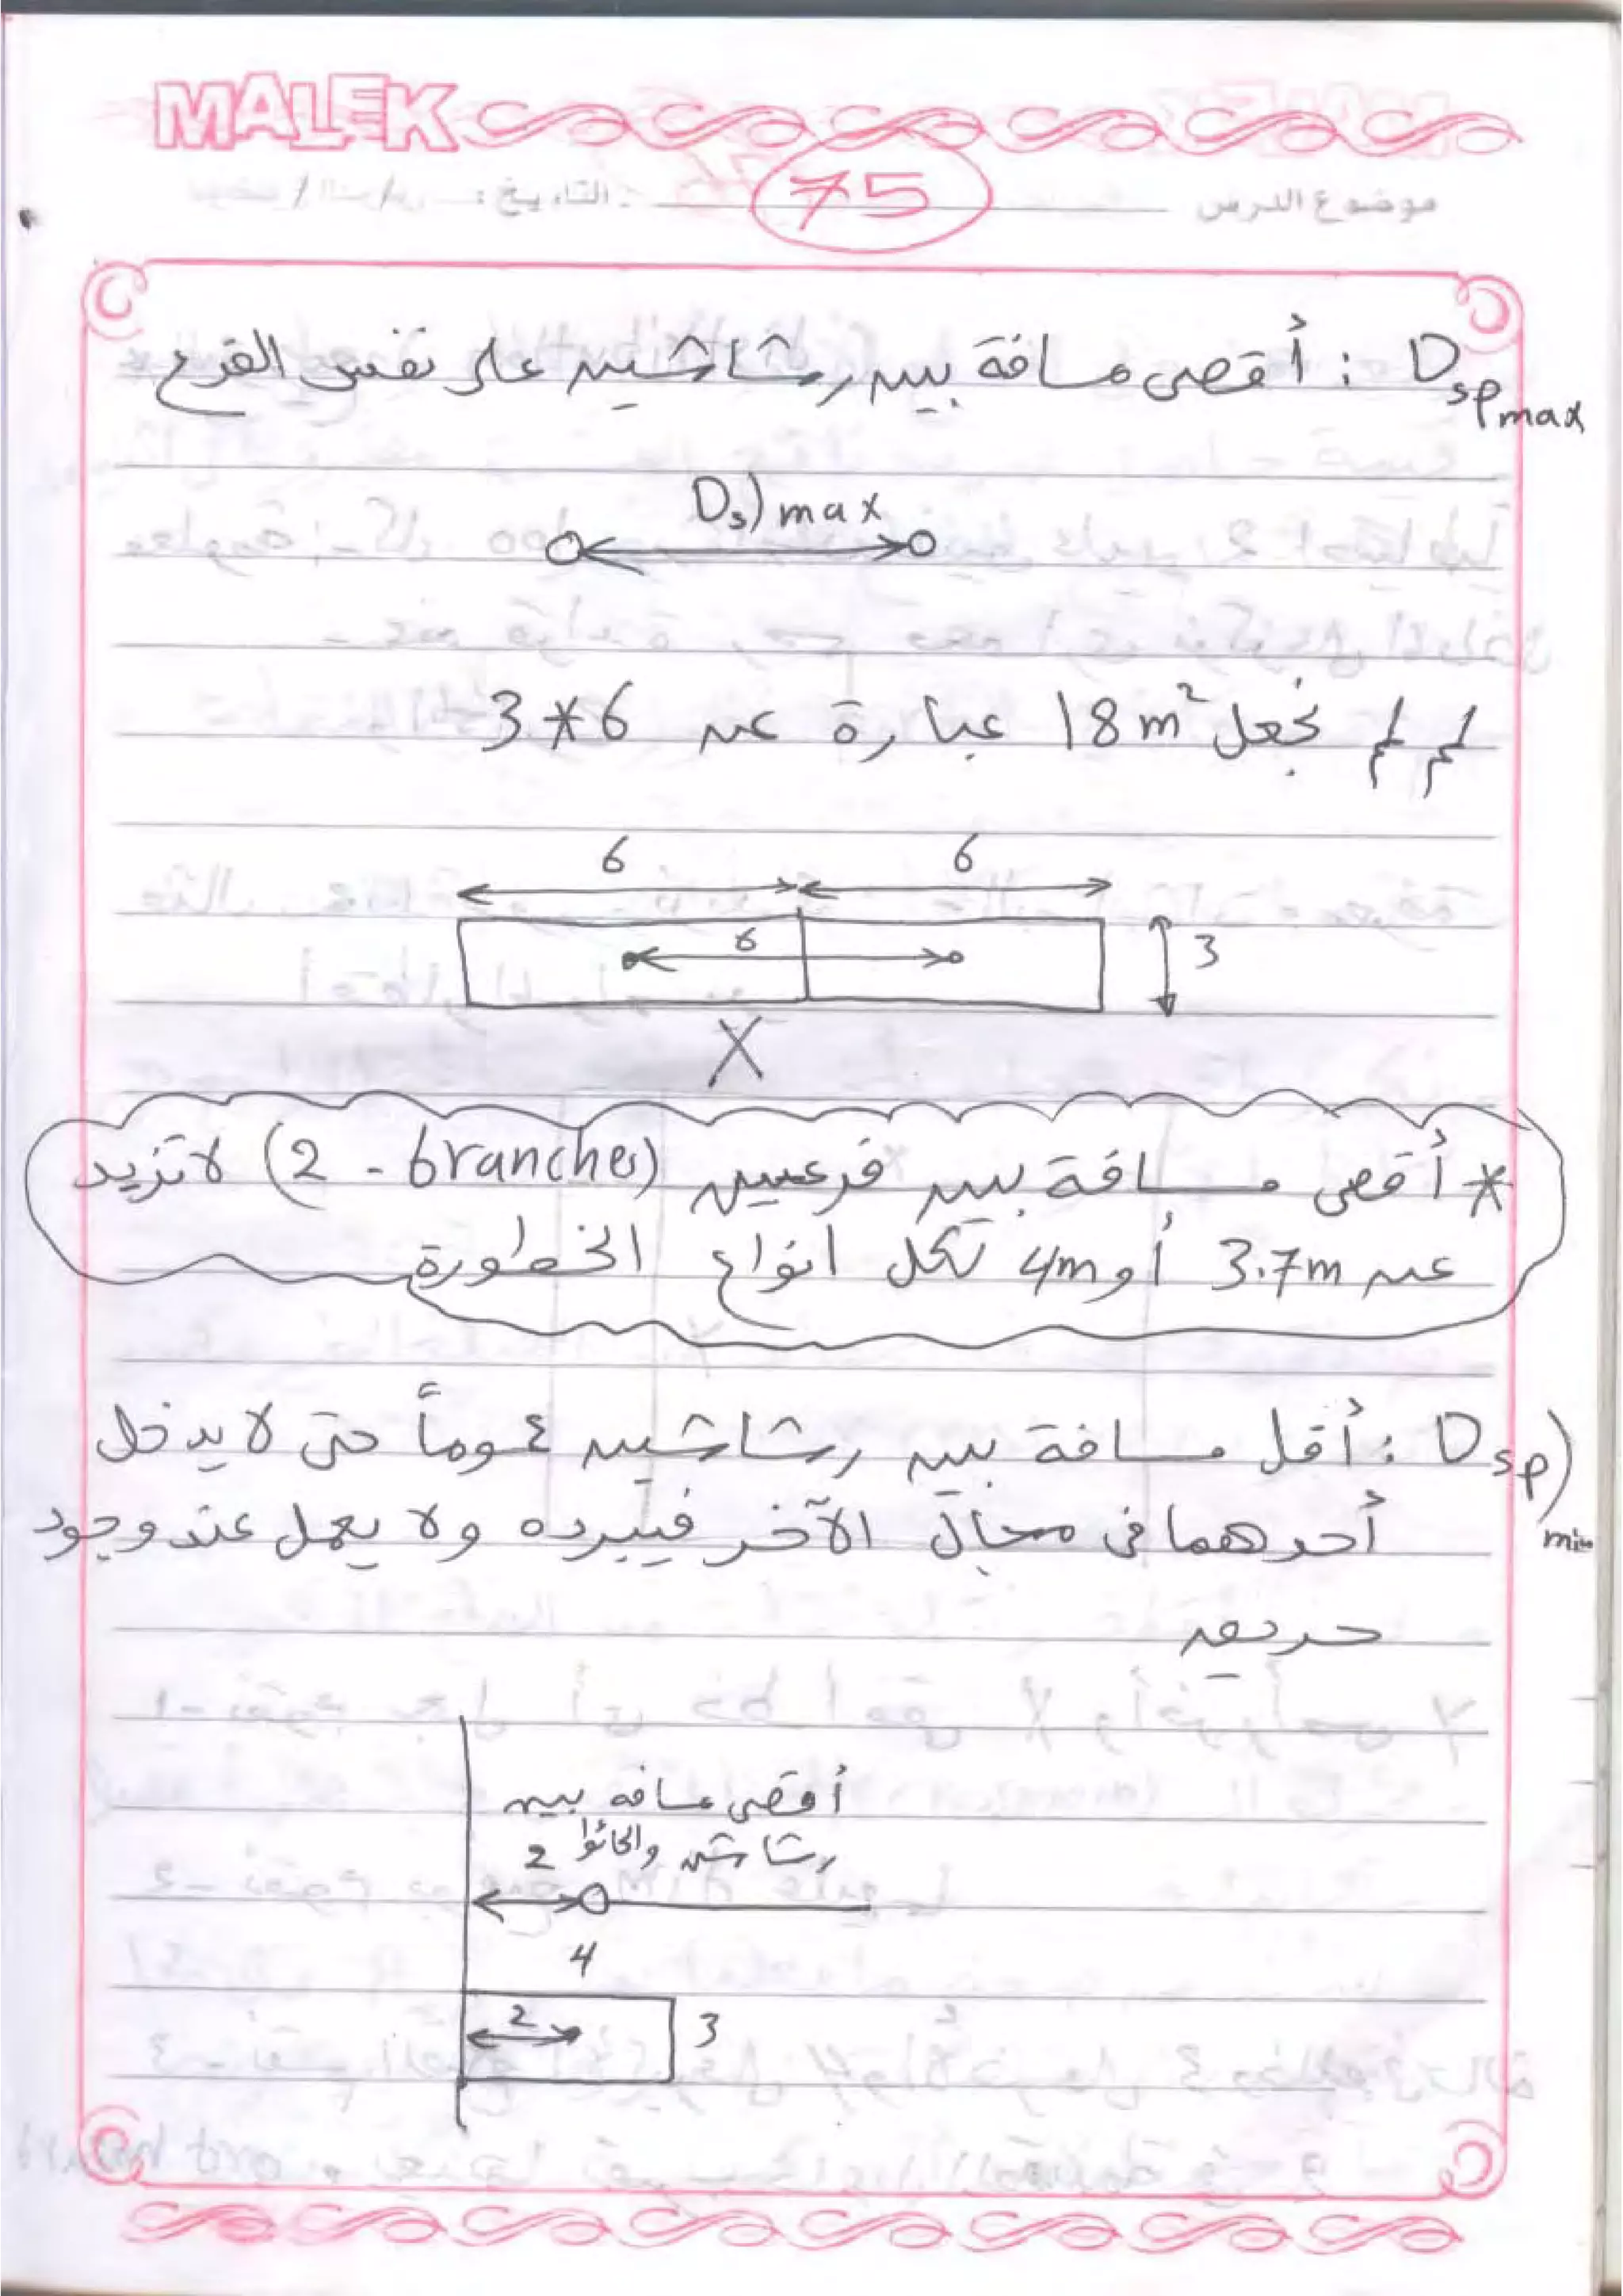 MALEK
75
موضوع الدرس
التاريخ:
Dsp max : أقصى مسافة بين رشاشين على نفس الفرع
Ds)max
لم لم نجعل 18m² عبارة عن 6*3
6 6
6
3
X
* أقصى مسافة بين فرعين (2 - branches) لا تزيد
عن 3.7m أو 4m لكل انواع الخطورة
Dsp)min : أقل مسافة بين رشاشين عموماً حتى لا يدخل
أحدهما في مجال الآخر فيبرده ولا يعمل عند وجود
حريق
أقصى مسافة بين
رشاش والحائط 2
4
2
3